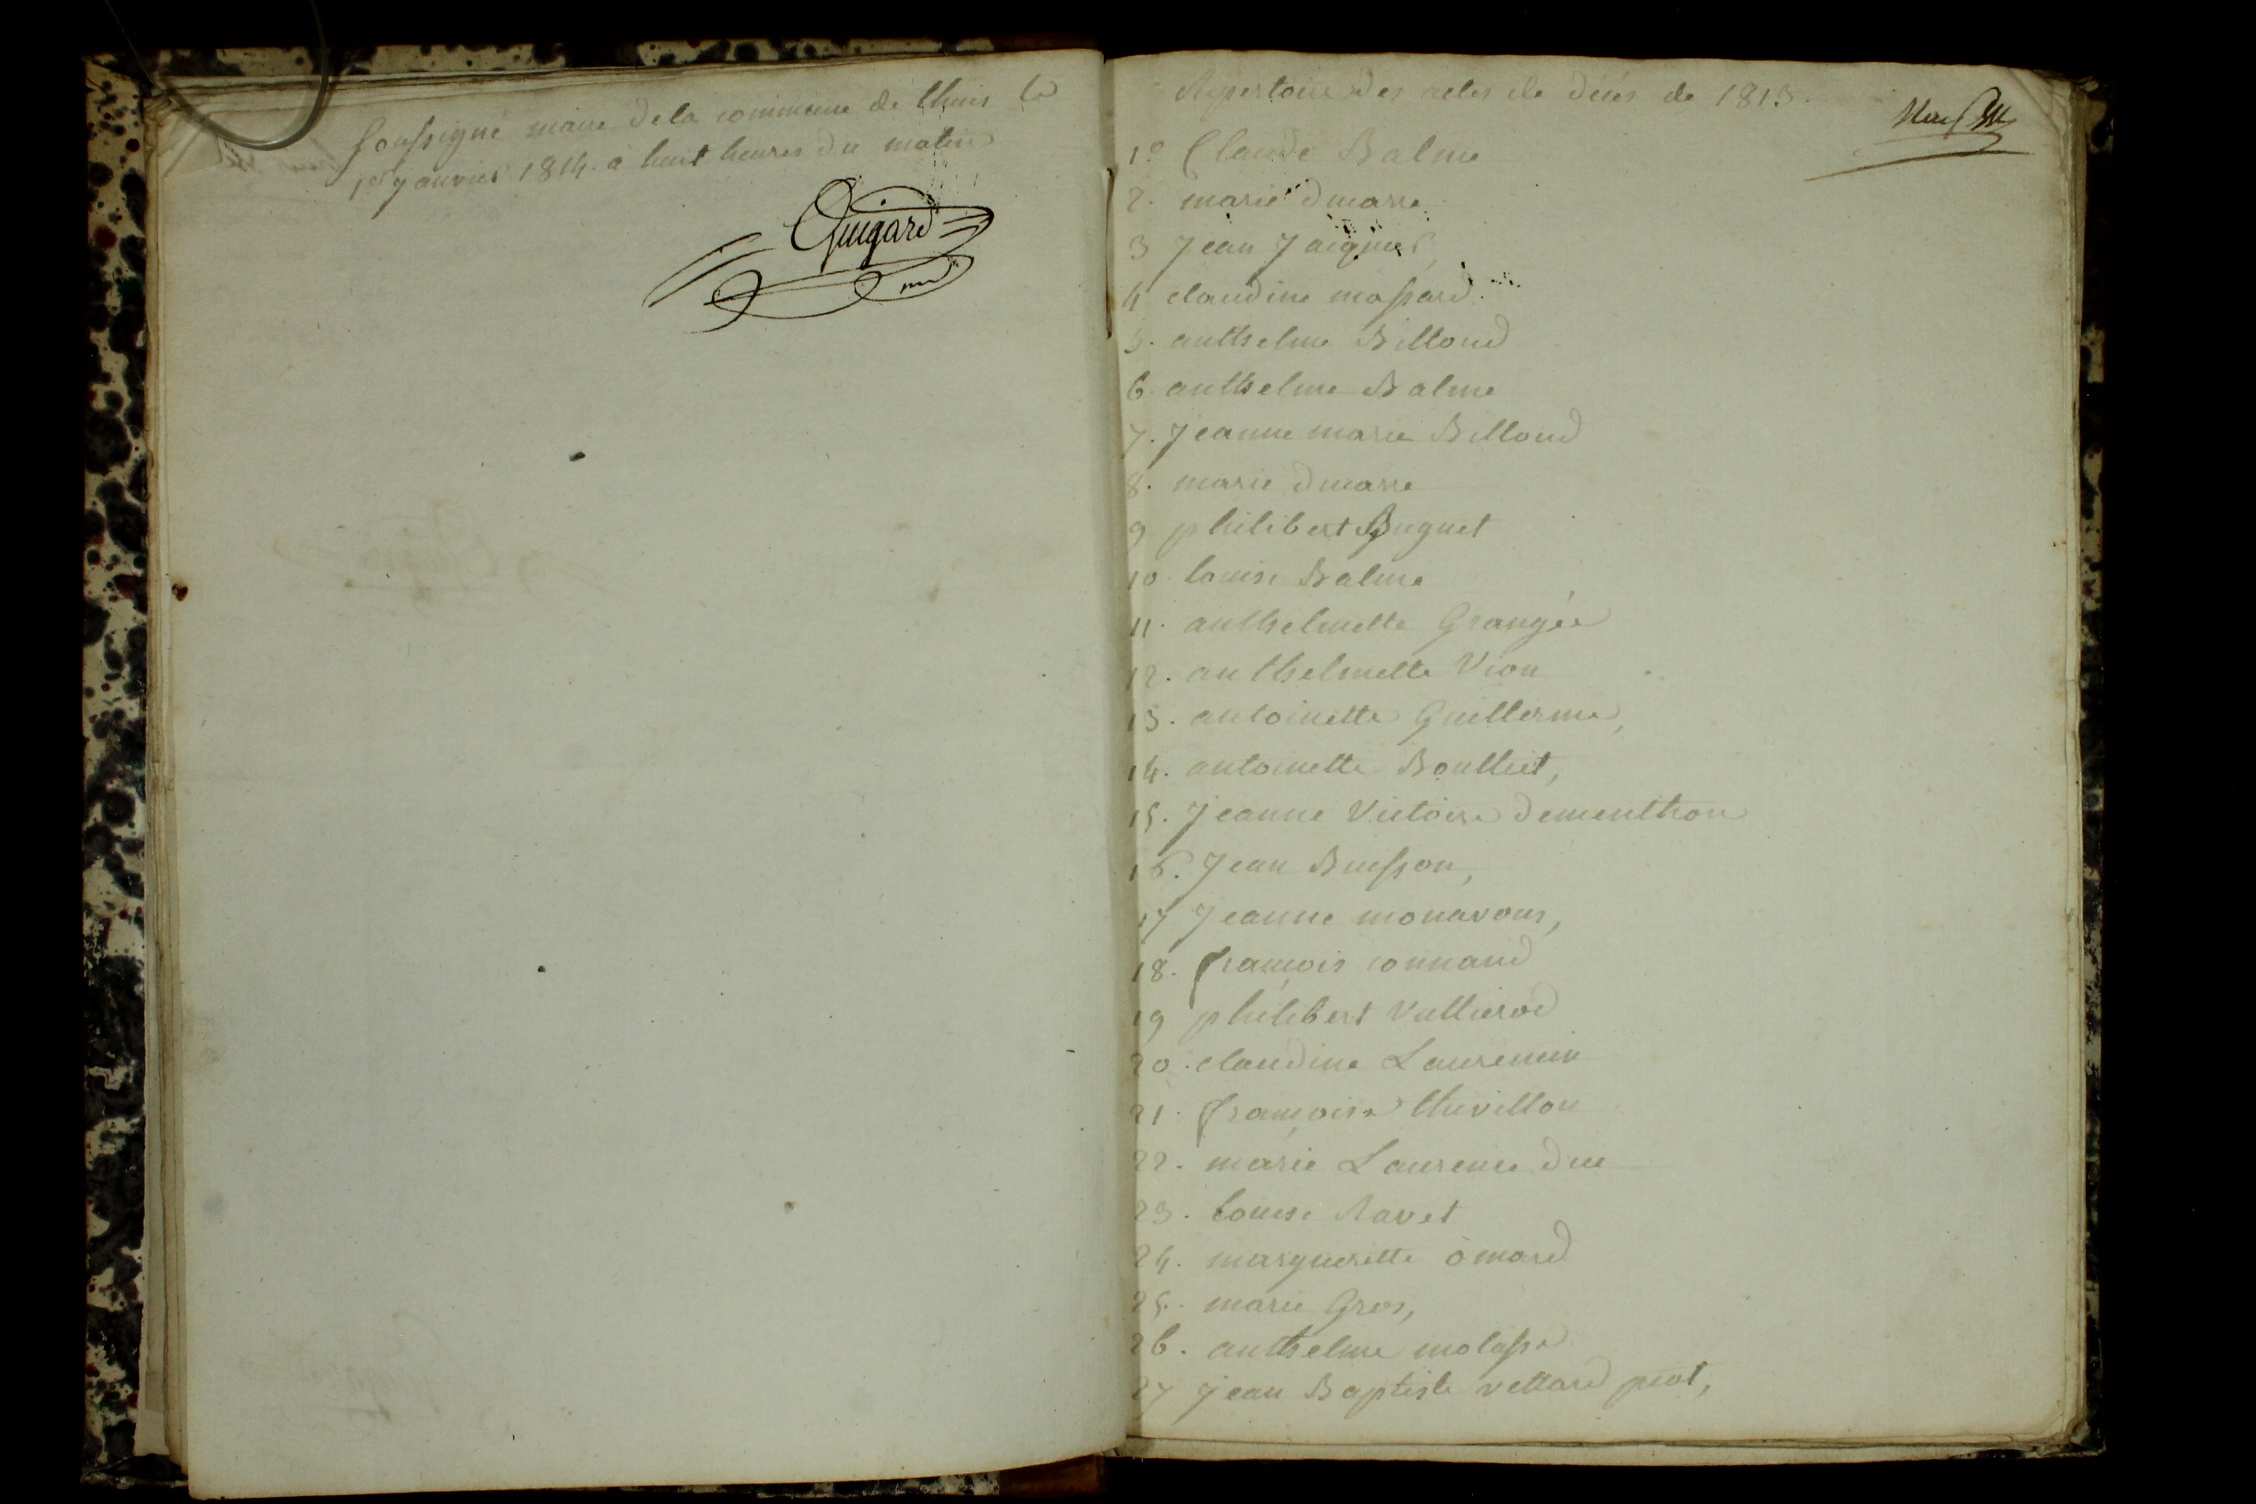 soussigné maire de la commune de lhuis le
1er janvier 1814. à huit heures du matin
Guigard
Repertoire des actes de décès de 1813.
1º Claude Balme
2. marie dmarre
3 Jean Jaiquier
4 claudine massard
5. anthelme Billoud
6. anthelme Balme
7. Jeanne marie Billoud
8. marie dmarre
9 philibert Buguet
10. louise Balme
11. anthelmette Grangée
12. anthelmette Vion
13. antoinette Guillerme,
14. antoinette Boulliet,
15. Jeanne Victoire dementhon
16. Jean Buisson,
17 Jeanne monavons,
18. françois connand
19 philibert Vullierod
20. claudine Laurencin
21. françoise thevillon
22. marie Laurence duc
23. louise Ravet
24. marguerette ômard
25. marie Gros,
26. anthelme molasse
27 Jean Baptiste vettard piot,